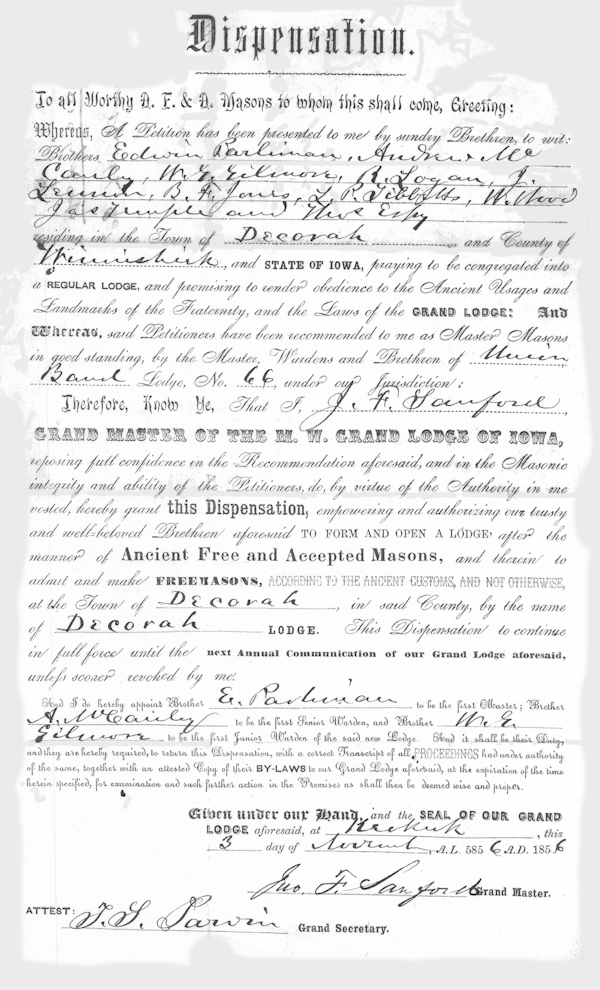 Dispensation.
To all Worthy A. F. & A. Masons to whom this shall come, Greeting:
Whereas, A Petition has been presented to me by sundry Brethren, to wit:
Brothers Edwin Parliman, Andrew Mc
Cauly, W. E. Gilmore, R. Logan, J.
B. F. Jones, L. P. Tibbetts, W.
Jas Temple and Thos Espy
residing in the Town of Decorah and County of
Winnishiek, and STATE OF IOWA, praying to be congregated into
a REGULAR LODGE, and promising to render obedience to the Ancient Usages and
Landmarks of the Fraternity, and the Laws of the GRAND LODGE: And
Whereas, said Petitioners have been recommended to me as Master Masons
in good standing, by the Master, Wardens and Brethren of Union
Band Lodge, No. 66, under our Jurisdiction:
Therefore, Know Ye, That I, J. F. Sanford
GRAND MASTER OF THE M. W. GRAND LODGE OF IOWA,
reposing full confidence in the Recommendation aforesaid, and in the Masonic
integrity and ability of the Petitioners, do, by virtue of the Authority in me
vested, hereby grant this Dispensation, empowering and authorizing our trusty
and well-beloved Brethren aforesaid TO FORM AND OPEN A LODGE after the
manner of Ancient Free and Accepted Masons, and therein to
admit and make FREEMASONS, ACCORDING TO THE ANCIENT CUSTOMS, AND NOT OTHERWISE,
at the Town of Decorah, in said County, by the name
of Decorah LODGE. This Dispensation to continue
in full force until the next Annual Communication of our Grand Lodge aforesaid,
unless sooner revoked by me.
And I do hereby appoint Brother E. Parliman to be the first Master; Brother
A. McCauly to be the first Senior Warden, and Brother W. E.
Gilmore to be the first Junior Warden of the said new Lodge. And it shall be their Duty,
and they are hereby required, to return this Dispensation, with a correct Transcript of all PROCEEDINGS had under authority
of the same, together with an attested Copy of their BY-LAWS to our Grand Lodge aforesaid, at the expiration of the time
herein specified, for examination and such further action in the Premises as shall then be deemed wise and proper.
Given under our Hand, and the SEAL OF OUR GRAND
LODGE aforesaid, at Keokuk, this
3 day of A.L. 5856 A.D. 1856
Jno. F. Sanford Grand Master.
ATTEST: T. S. Parvin Grand Secretary.